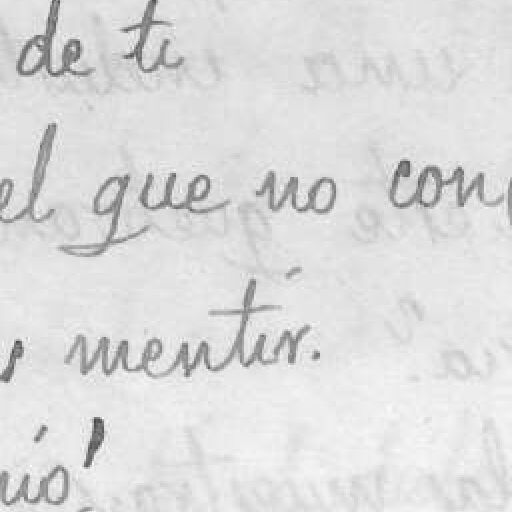 de ti
el que no con
mentir.